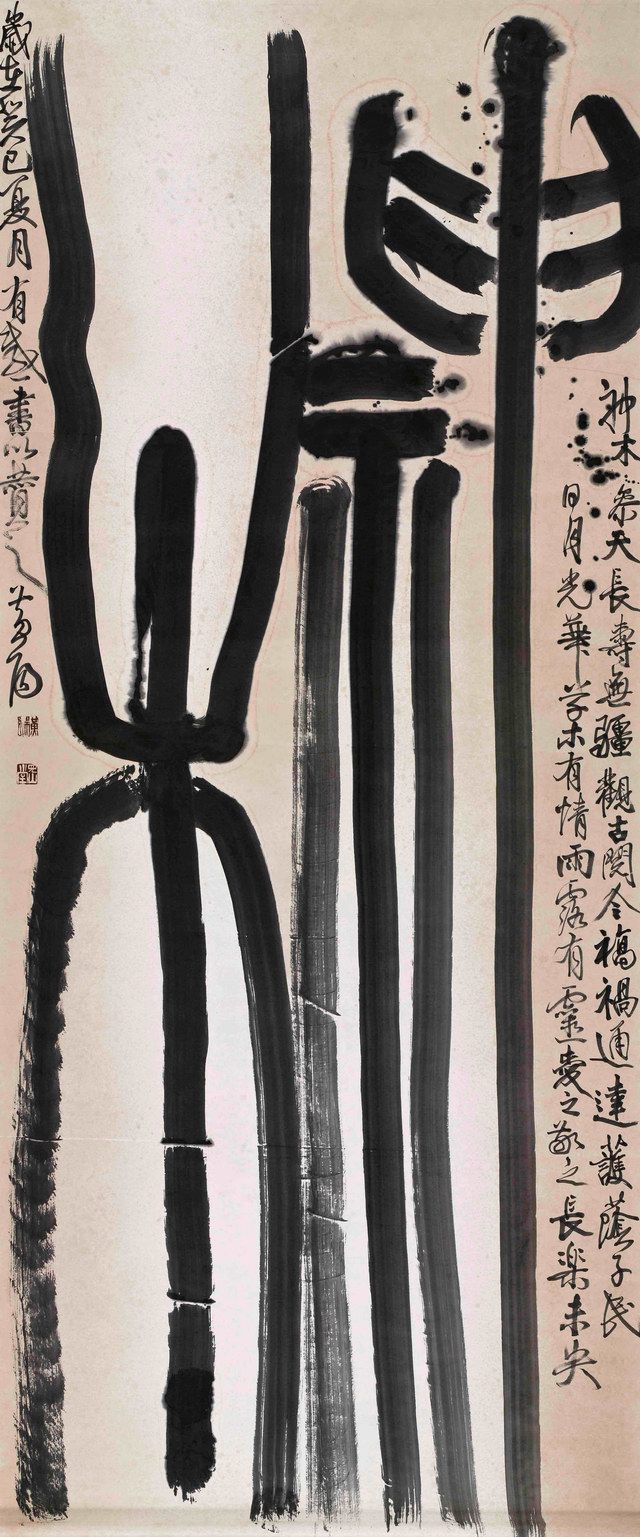 神木
神木参天長壽無疆觀古閱今福禍通達護蔭子民
日月光華草木有情雨露有靈愛之敬之長楽未央
歲在癸巳夏月有感書以贊之